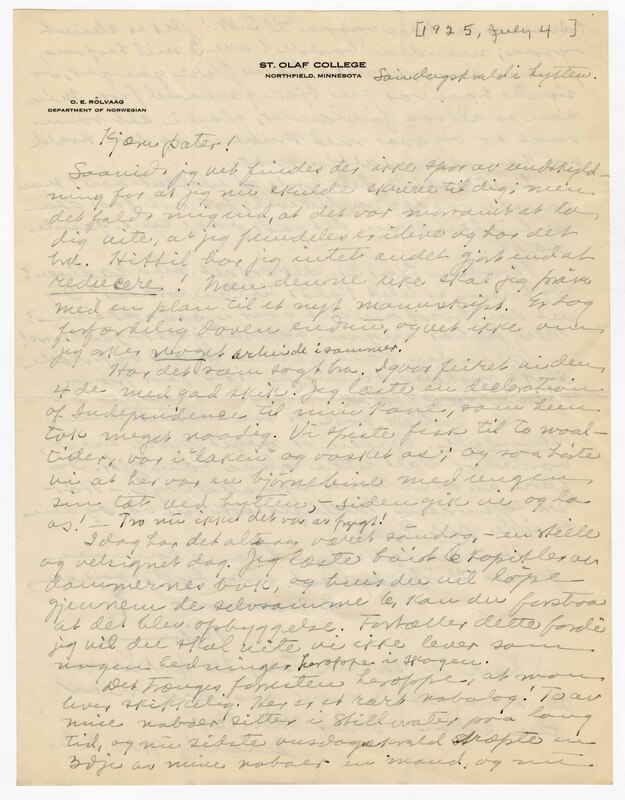 [1925, July 4]
ST. OLAF COLLEGE
NORTHFIELD, MINNESOTA
Søndagskveld i hytten.
O. E. RÖLVAAG
DEPARTMENT OF NORWEGIAN
Kjære pater!
Saavidt jeg vet findes der ikke spor av undskyld-
ning for at jeg nu skulde skrive til dig; men
det faldt mig ind, at det var morsomt at la
dig vite, at jeg fremdeles er ilive og har det
bra. Hittil har jeg intet andet gjort end at
reducere! Men denne uke skal jeg prøve
med en plan til et nyt manuskript. Er dog
forfærdelig doven endnu, og vet ikke om
jeg orker noget arbeide i sommer.
Har det som sagt bra. Igaar feiret vi den
4de med god skik. Jeg læste en declaration
of Independence til min kone, som hun
tok meget naadig. Vi spiste fisk til to maal-
tider, var i "laken" og vasket os; og saa hørte
vi at her var en björnebinne med ungen
sin tæt ved hytten, – siden gik vi og la
os! – Tro nu ikke det var av frygt!
Idag har det altsaa været søndag, – en stille
og velsignet dag. Jeg læste høit 6 kapitler av
dommernes bok, og hvis du vil løpe
gjennem de selvsamme 6, kan du forstaa
at det blev opbyggelse. Fortæller dette fordi
jeg vil du skal vite vi ikke lever som
nogen hedninger heroppe i skogen.
Det trænges forresten heroppe, at man
lever skikkelig. Her er et rart nabolag! To av
mine naboer sitter i Stillwater paa lang
tid, og nu sidste onsdagskveld dræpte en
3dje av mine naboer en mand, og nu